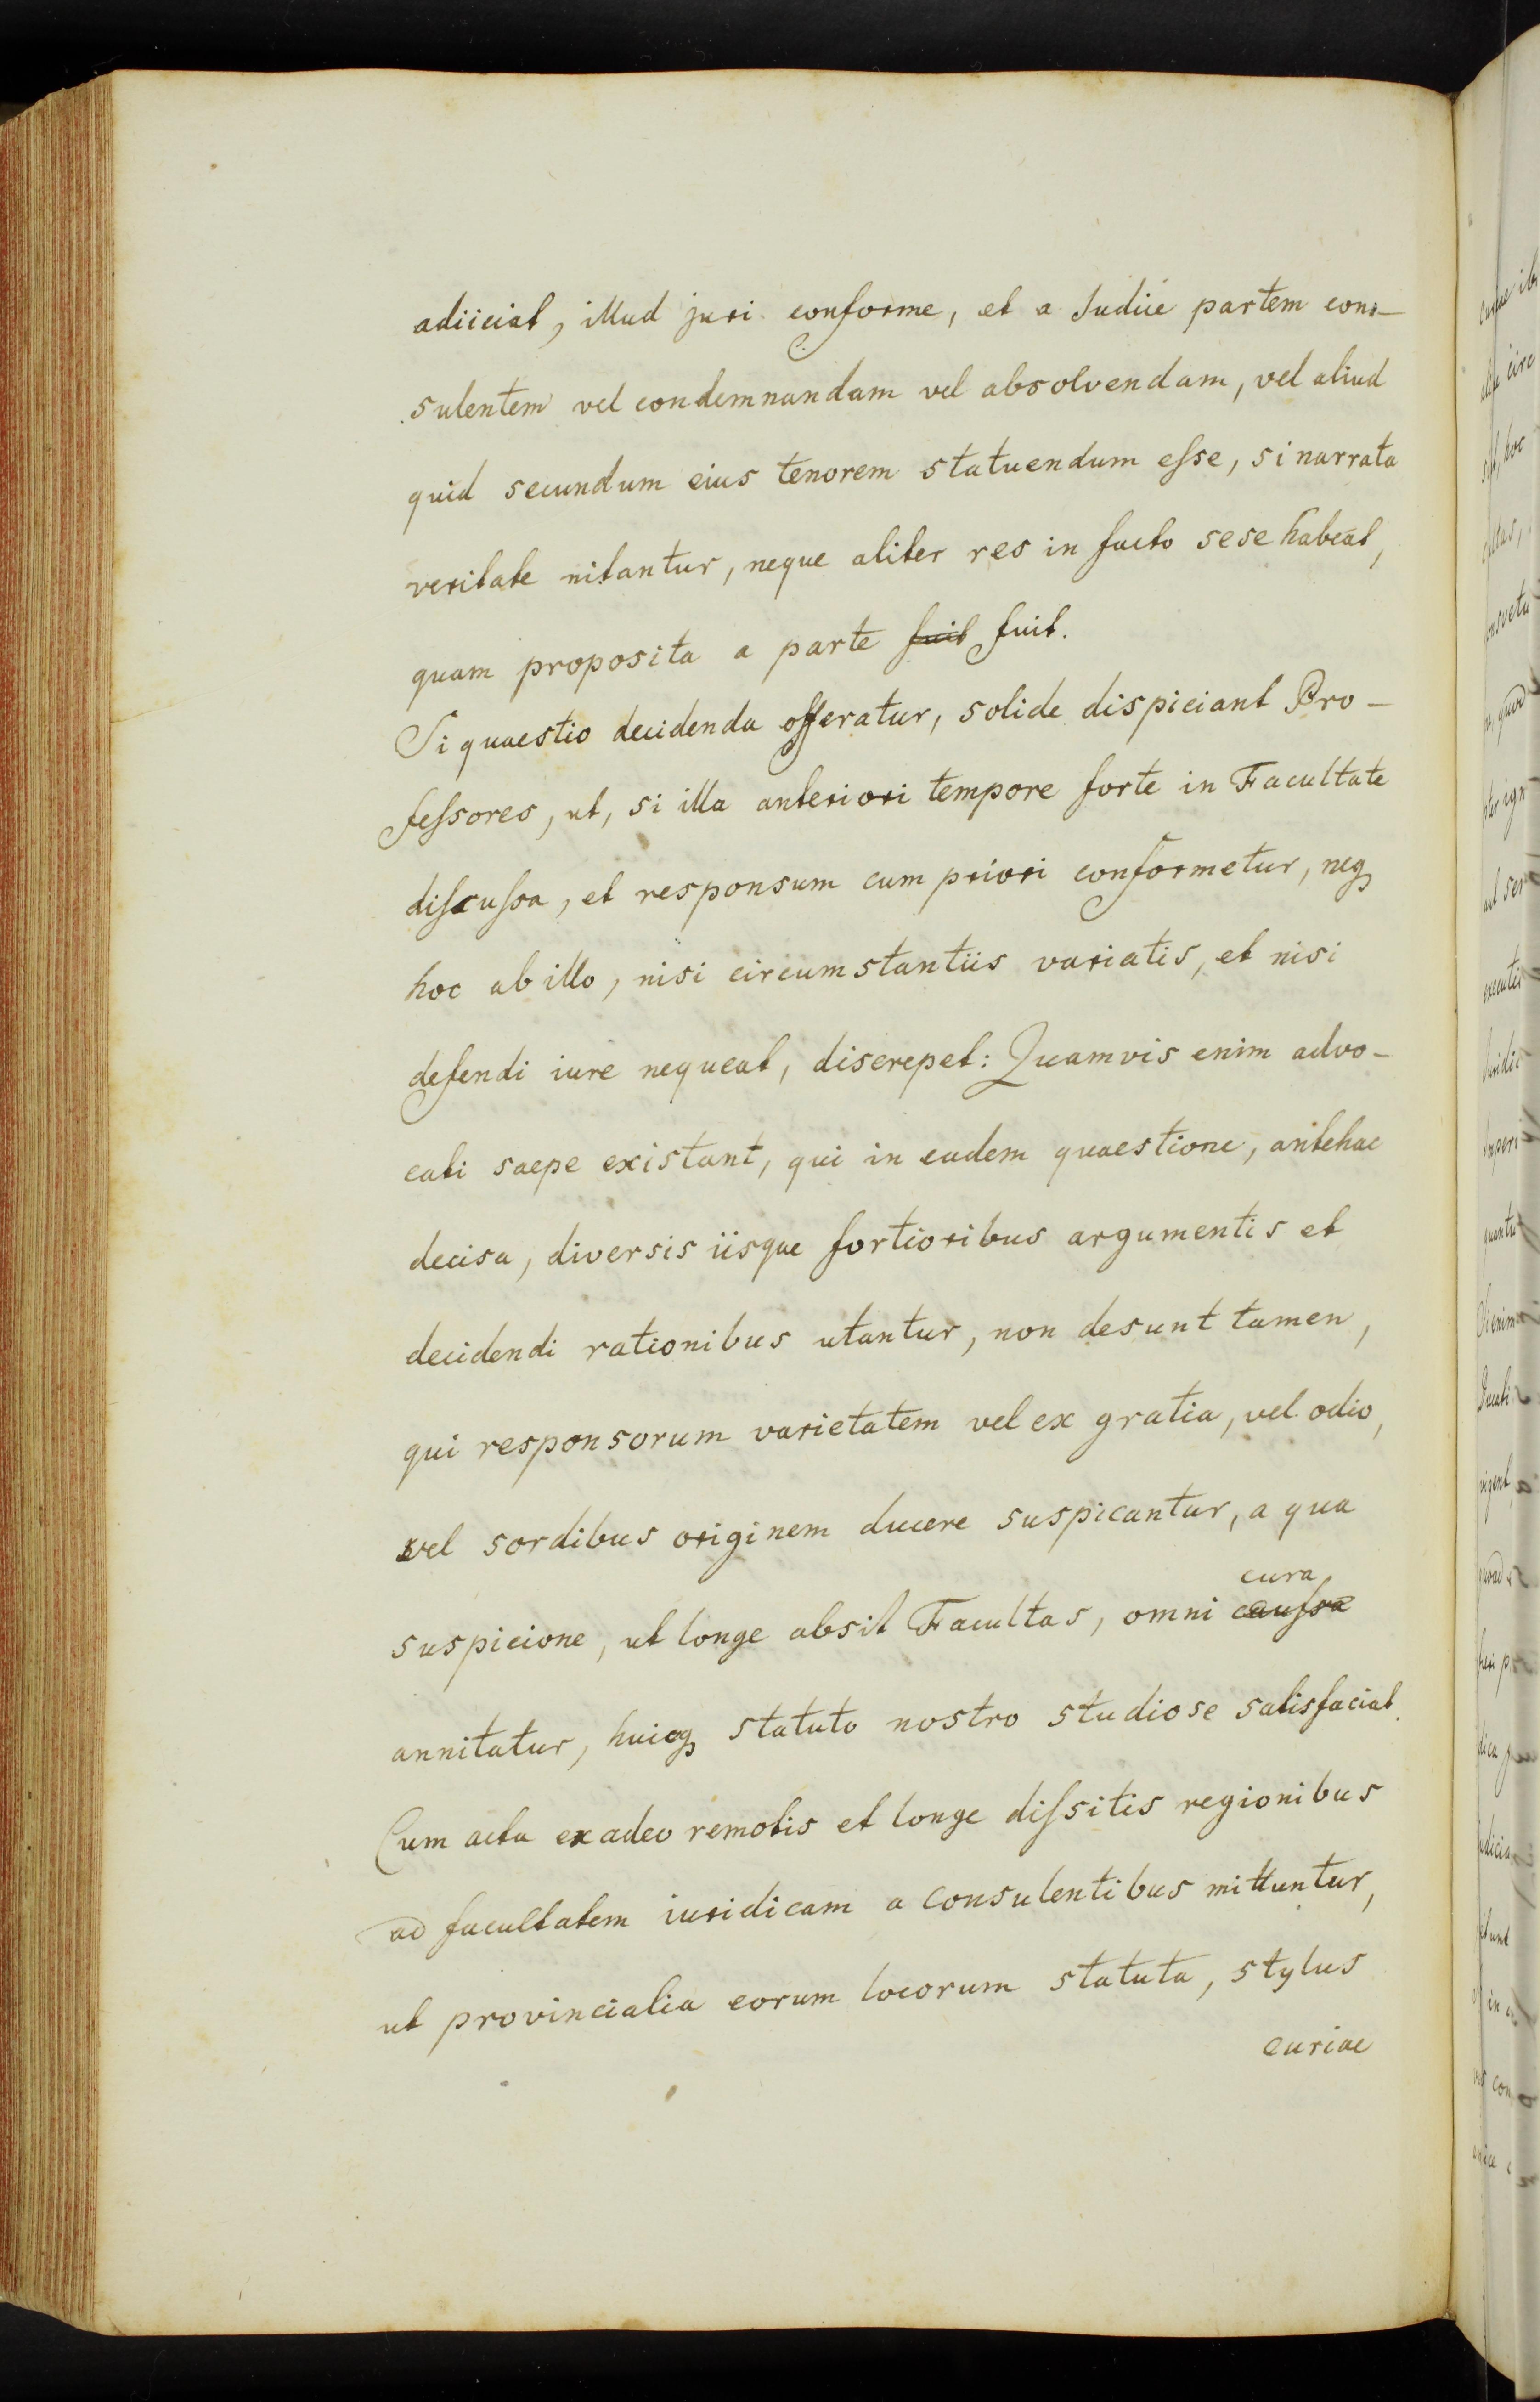 adiiciat, illud juri conforme, et a Judice partem con-
sulentem vel condemnandam vel absolvendam, vel aliud
quid secundum eius tenorem statuendum eſse, si narrata
veritate nitantur, neque aliter res in facto sese habeat,
quam proposita a parte fuit fuit.
Si quaestio decidenda offeratur, solide dispiciant Pro-
feſsores, ut, si illa anteriori tempore forte in Facultate
diſcuſsa, et responsum cum priori conformetur, neq
hoc ab illo, nisi circumstantiis variatis, et nisi
defendi iure nequeat, discrepet: Quamvis enim advo-
cati saepe existant, qui in eadem quaestione, antehac
decisa, diversis iisque fortioribus argumentis et
decidendi rationibus utantur, non desunt tamen,
qui responsorum varietatem vel ex gratia, vel odio,
vel sordibus originem ducere suspicantur, a qua
cura
suspicione, ut longe absit Facultas, omni cauſsa
annitatur, huicq statuto nostro studiose satisfaciat.
Cum acta ex adeo remotis et longe diſsitis regionibus
ad facultatem iuridicam a consulentibus mittuntur,
ut provincialia eorum locorum statuta, stylus
curiae